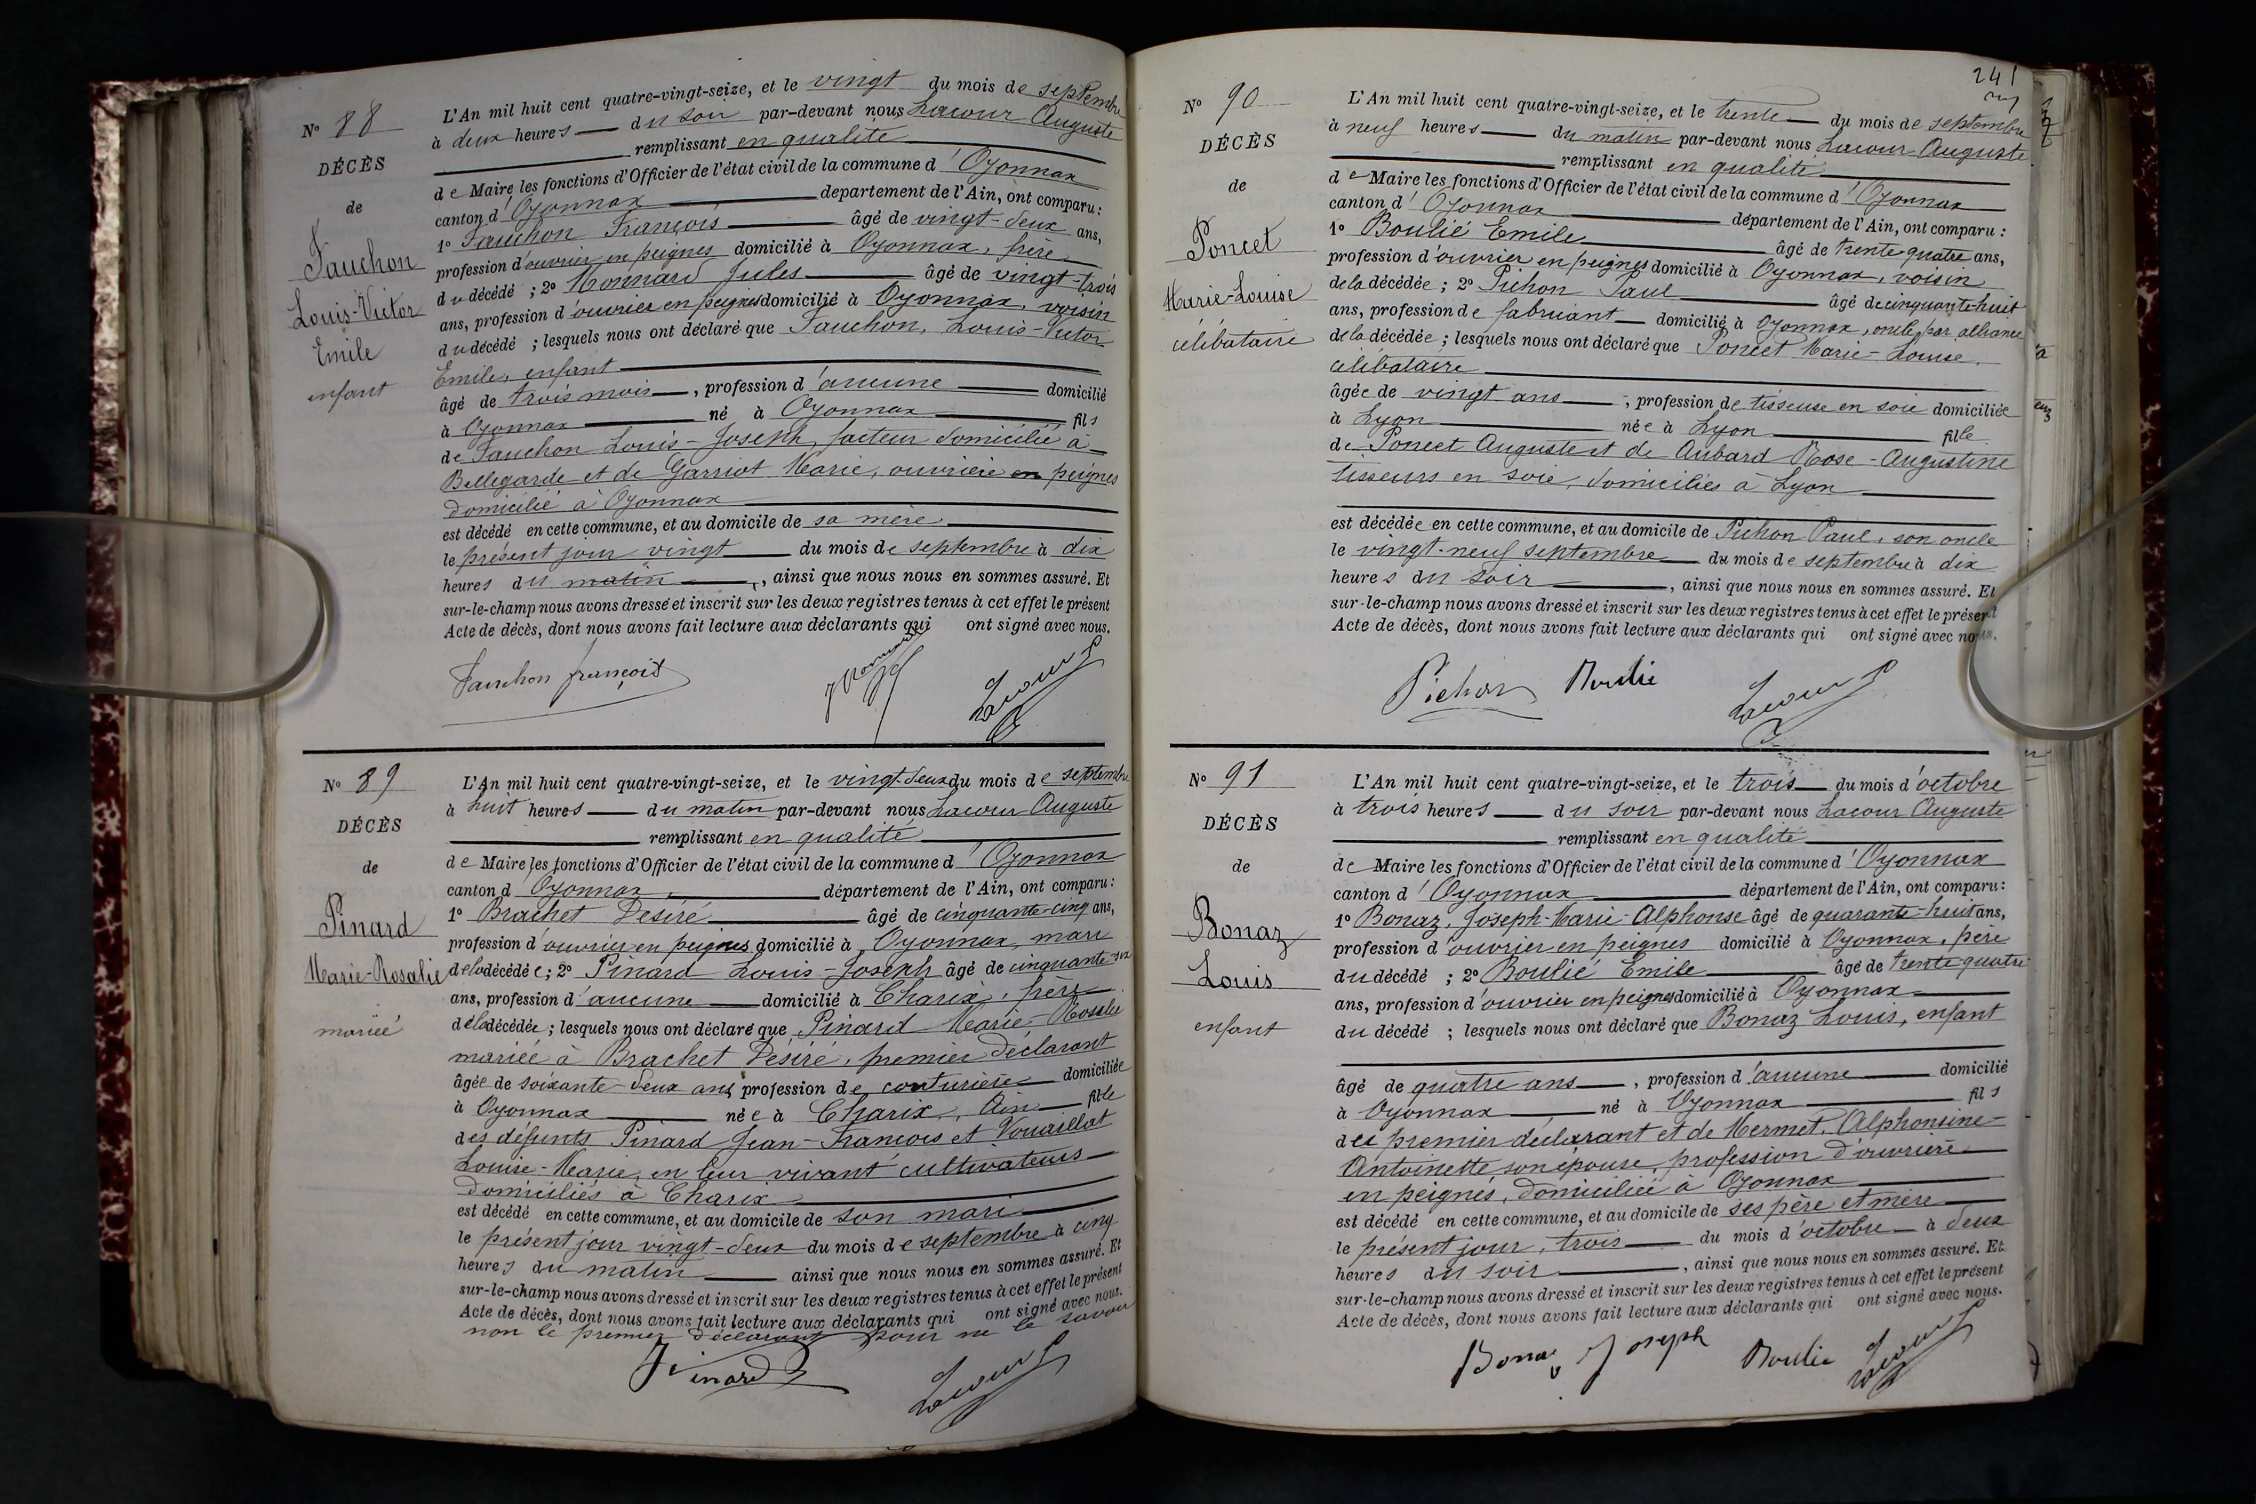 N° 88
DÉCÈS
de
Fauchon
Louis-Victor
Emile
enfant
L'An mil huit cent quatre-vingt-seize, et le vingt du mois de septembre
à deux heures du soir par-devant nous Lacour Auguste
remplissant en qualité
de Maire les fonctions d'Officier de l'état civil de la commune d'Oyonnax
canton d'Oyonnax département de l'Ain, ont comparu :
1° Fauchon François âgé de vingt-deux ans,
profession d'ouvrier en peignes domicilié à Oyonnax, frère
du décédé ; 2° Monnard Jules âgé de vingt-trois
ans, profession d'ouvrier en peignes domicilié à Oyonnax, voisin
du décédé ; lesquels nous ont déclaré que Fauchon, Louis-Victor
Emile, enfant
âgé de trois mois, profession d'aucune domicilié
à Oyonnax né à Oyonnax fils
de Fauchon Louis-Joseph, facteur domicilié à
Bellegarde et de Garriot Marie, ouvrière en peignes
domicilié à Oyonnax
est décédé en cette commune, et au domicile de sa mère
le présent jour vingt du mois de septembre à dix
heures du matin, ainsi que nous nous en sommes assuré. Et
sur-le-champ nous avons dressé et inscrit sur les deux registres tenus à cet effet le présent
Acte de décès, dont nous avons fait lecture aux déclarants qui ont signé avec nous.
Fauchon françois Lacour
N° 89
DÉCÈS
de
Pinard
Marie-Rosalie
mariée
L'An mil huit cent quatre-vingt-seize, et le vingt-deux du mois de septembre
à huit heures du matin par-devant nous Lacour Auguste
remplissant en qualité
de Maire les fonctions d'Officier de l'état civil de la commune d'Oyonnax
canton d Oyonnax, département de l'Ain, ont comparu :
1° Brachet Désiré âgé de cinquante-cinq ans,
profession d'ouvrier en peignes domicilié à Oyonnax, mari
de la décédée ; 2° Pinard Louis-Joseph âgé de cinquante-six
ans, profession d'aucune domicilié à Charix, frère
de la décédée ; lesquels nous ont déclaré que Pinard Marie-Rosalie
mariée à Brachet Désiré, premier déclarant
âgée de soixante-deux ans, profession de couturière domiciliée
à Oyonnax née à Charix, Ain fille
des défunts Pinard Jean-François et Vouaillat
Louise-Marie, en leur vivant cultivateurs
domiciliés à Charix
est décédé en cette commune, et au domicile de son mari
le présent jour vingt-deux du mois de septembre à cinq
heures du matin ainsi que nous nous en sommes assuré. Et
sur-le-champ nous avons dressé et inscrit sur les deux registres tenus à cet effet le présent
Acte de décès, dont nous avons fait lecture aux déclarants qui ont signé avec nous.
non le premier déclarant pour ne le savoir
Pinard Lacour
241
N° 90
DÉCÈS
de
Poncet
Marie-Louise
célibataire
L'An mil huit cent quatre-vingt-seize, et le trente du mois de septembre
à neuf heures du matin par-devant nous Lacour Auguste
remplissant en qualité
de Maire les fonctions d'Officier de l'état civil de la commune d'Oyonnax
canton d'Oyonnax département de l'Ain, ont comparu :
1° Boulié Emile âgé de trente-quatre ans,
profession d'ouvrier en peignes domicilié à Oyonnax, voisin
de la décédée ; 2° Pichon Paul âgé de cinquante-huit
ans, profession de fabricant domicilié à Oyonnax, oncle par alliance
de la décédée ; lesquels nous ont déclaré que Poncet Marie-Louise,
célibataire
âgée de vingt ans, profession de tisseuse en soie domiciliée
à Lyon née à Lyon fille
de Poncet Auguste et de Aubard Rose-Augustine
tisseurs en soie, domiciliés à Lyon
est décédée en cette commune, et au domicile de Pichon Paul, son oncle
le vingt-neuf septembre du mois de septembre à dix
heures du soir, ainsi que nous nous en sommes assuré. Et
sur-le-champ nous avons dressé et inscrit sur les deux registres tenus à cet effet le présent
Acte de décès, dont nous avons fait lecture aux déclarants qui ont signé avec nous.
Pichon Boulié Lacour
N° 91
DÉCÈS
de
Bonaz
Louis
enfant
L'An mil huit cent quatre-vingt-seize, et le trois du mois d'octobre
à trois heures du soir par-devant nous Lacour Auguste
remplissant en qualité
de Maire les fonctions d'Officier de l'état civil de la commune d'Oyonnax
canton d'Oyonnax département de l'Ain, ont comparu :
1° Bonaz, Joseph-Marie-Alphonse âgé de quarante-huit ans,
profession d'ouvrier en peignes domicilié à Oyonnax, père
du décédé ; 2° Boulié Emile âgé de trente-quatre
ans, profession d'ouvrier en peignes domicilié à Oyonnax
du décédé ; lesquels nous ont déclaré que Bonaz Louis, enfant
âgé de quatre ans, profession d'aucune domicilié
à Oyonnax né à Oyonnax fils
des premier déclarant et de Mermet, Alphonsine-
Antoinette son épouse, profession d'ouvrière
en peignes, domiciliée à Oyonnax
est décédé en cette commune, et au domicile de ses père et mère
le présent jour, trois du mois d'octobre à deux
heures du soir, ainsi que nous nous en sommes assuré. Et
sur-le-champ nous avons dressé et inscrit sur les deux registres tenus à cet effet le présent
Acte de décès, dont nous avons fait lecture aux déclarants qui ont signé avec nous.
Bonaz Joseph Boulié Lacour